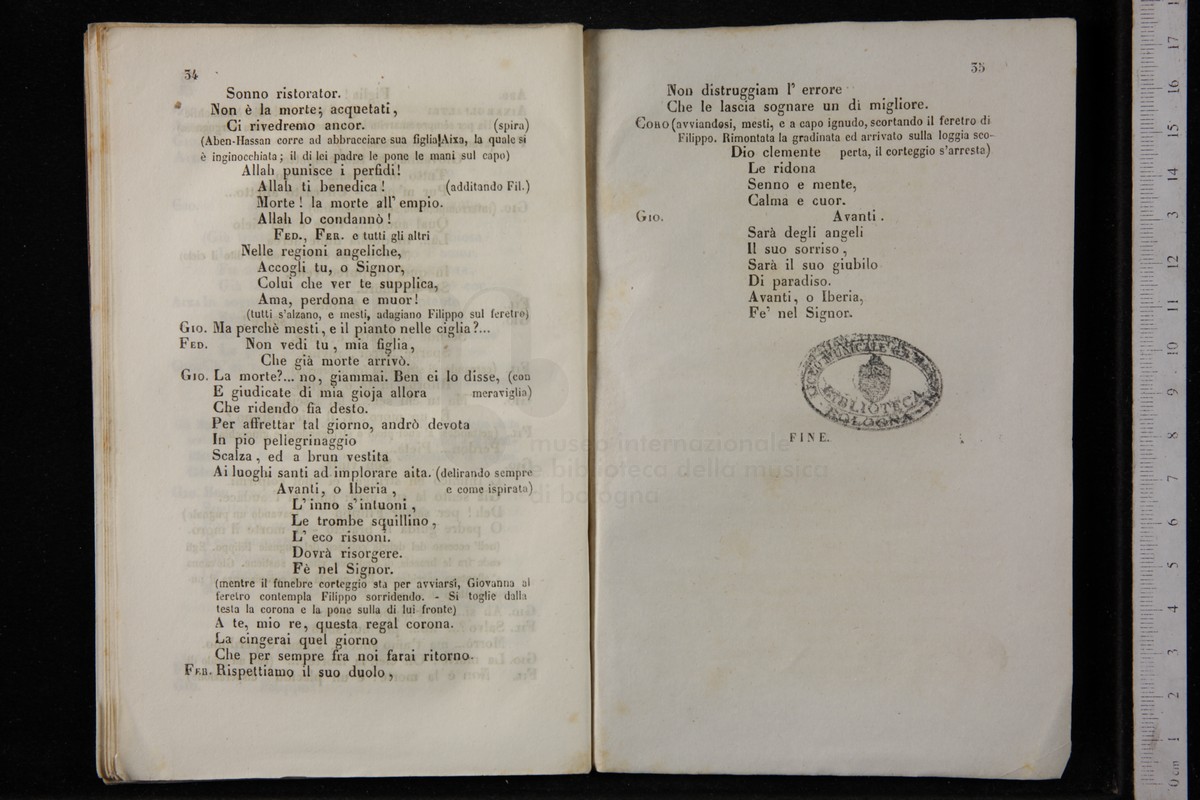 34
Sonno ristorator.
Non è la morte; acquetati,
Ci rivedremo ancor. (spira)
(Aben-Hassan corre ad abbracciare sua figlia Aixa, la quale si
è inginocchiata; il di lei padre le pone le mani sul capo)
Allah punisce i perfidi!
Allah ti benedica! (additando Fil.)
Morte! la morte all' empio.
Allah lo condannò!
FED., FER. e tutti gli altri
Nelle regioni angeliche,
Accogli tu, o Signor,
Colui che ver te supplica,
Ama, perdona e muor!
(tutti s'alzano, e mesti, adagiano Filippo sul feretro)
GIO. Ma perchè mesti, e il pianto nelle ciglia?...
FED. Non vedi tu, mia figlia,
Che già morte arrivò.
GIO. La morte?... no, giammai. Ben ei lo disse, (con
E giudicate di mia gioja allora meraviglia)
Che ridendo fia desto.
Per affrettar tal giorno, andrò devota
In pio peliegrinaggio
Scalza, ed a brun vestita
Ai luoghi santi ad implorare aita. (delirando sempre
Avanti, o Iberia, e come ispirata)
L' inno s' intuoni,
Le trombe squillino,
L' eco risuoni.
Dovrà risorgere.
Fè nel Signor.
(mentre il funebre corteggio sta per avviarsi, Giovanna al
feretro contempla Filippo sorridendo. - Si toglie dalla
testa la corona e la pone sulla di lui fronte)
A te, mio re, questa regal corona.
La cingerai quel giorno
Che per sempre fra noi farai ritorno.
FER. Rispettiamo il suo duolo,
35
Non distruggiam l' errore
Che le lascia sognare un dì migliore.
CORO (avviandosi, mesti, e a capo ignudo, scortando il feretro di
Filippo. Rimontata la gradinata ed arrivato sulla loggia sco-
Dio clemente perta, il corteggio s'arresta)
Le ridona
Senno e mente,
Calma e cuor.
GIO. Avanti.
Sarà degli angeli
Il suo sorriso,
Sarà il suo giubilo
Di paradiso.
Avanti, o Iberia,
Fe' nel Signor.
LICEO MUSICALE
BIBLIOTECA
BOLOGNA
FINE.
museo internazionale
e biblioteca della musica
di bologna
0 cm 1 2 3 4 5 6 7 8 9 10 11 12 13 14 15 16 17